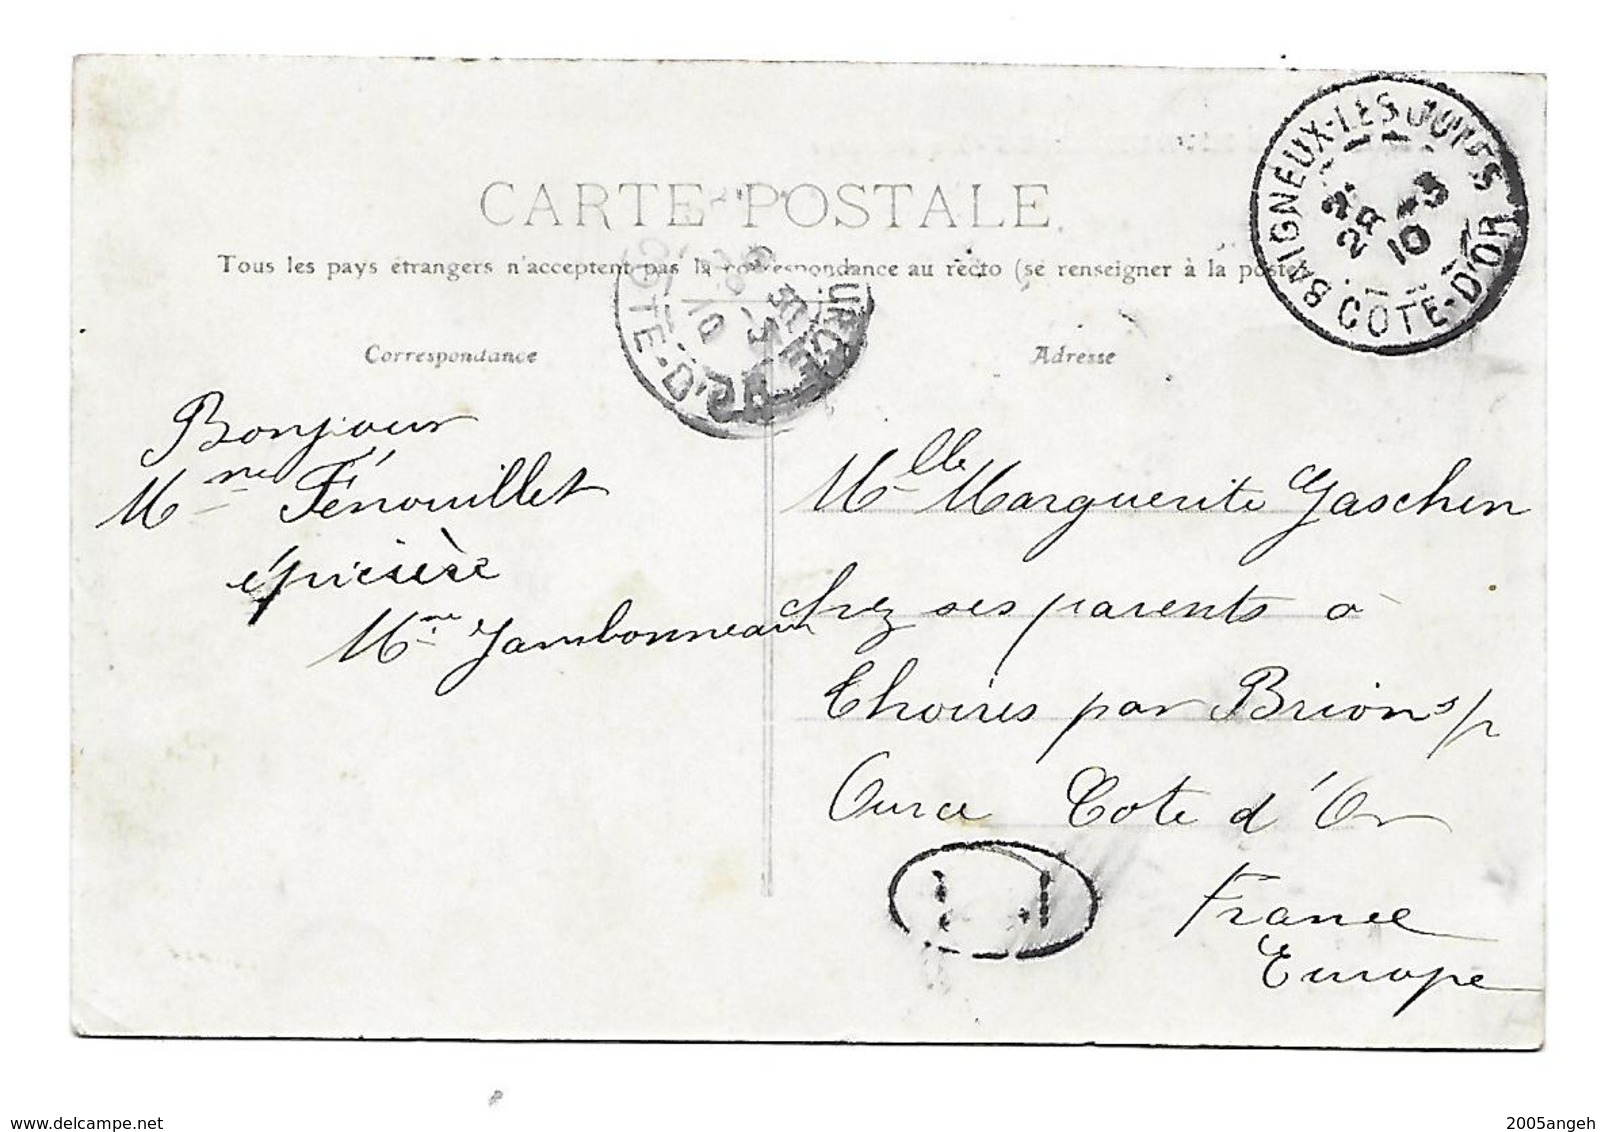 CARTE POSTALE
Tous les pays étrangers n'acceptent pas la correspondance au recto (se renseigner à la poste)
BAIGNEUX-LES-JUIFS
28 -3
10
COTE-D'OR
COTE-D'OR
10
Correspondance
Adresse
Bonjour
Mme Fénouillet
épicière
Mme Jambonneau
Mlle Marguerite Gaschen
chez ses parents à
Thoires par Brion s/r
Ource Cote d'Or
France
Europe
delcampe.net
2005angeh